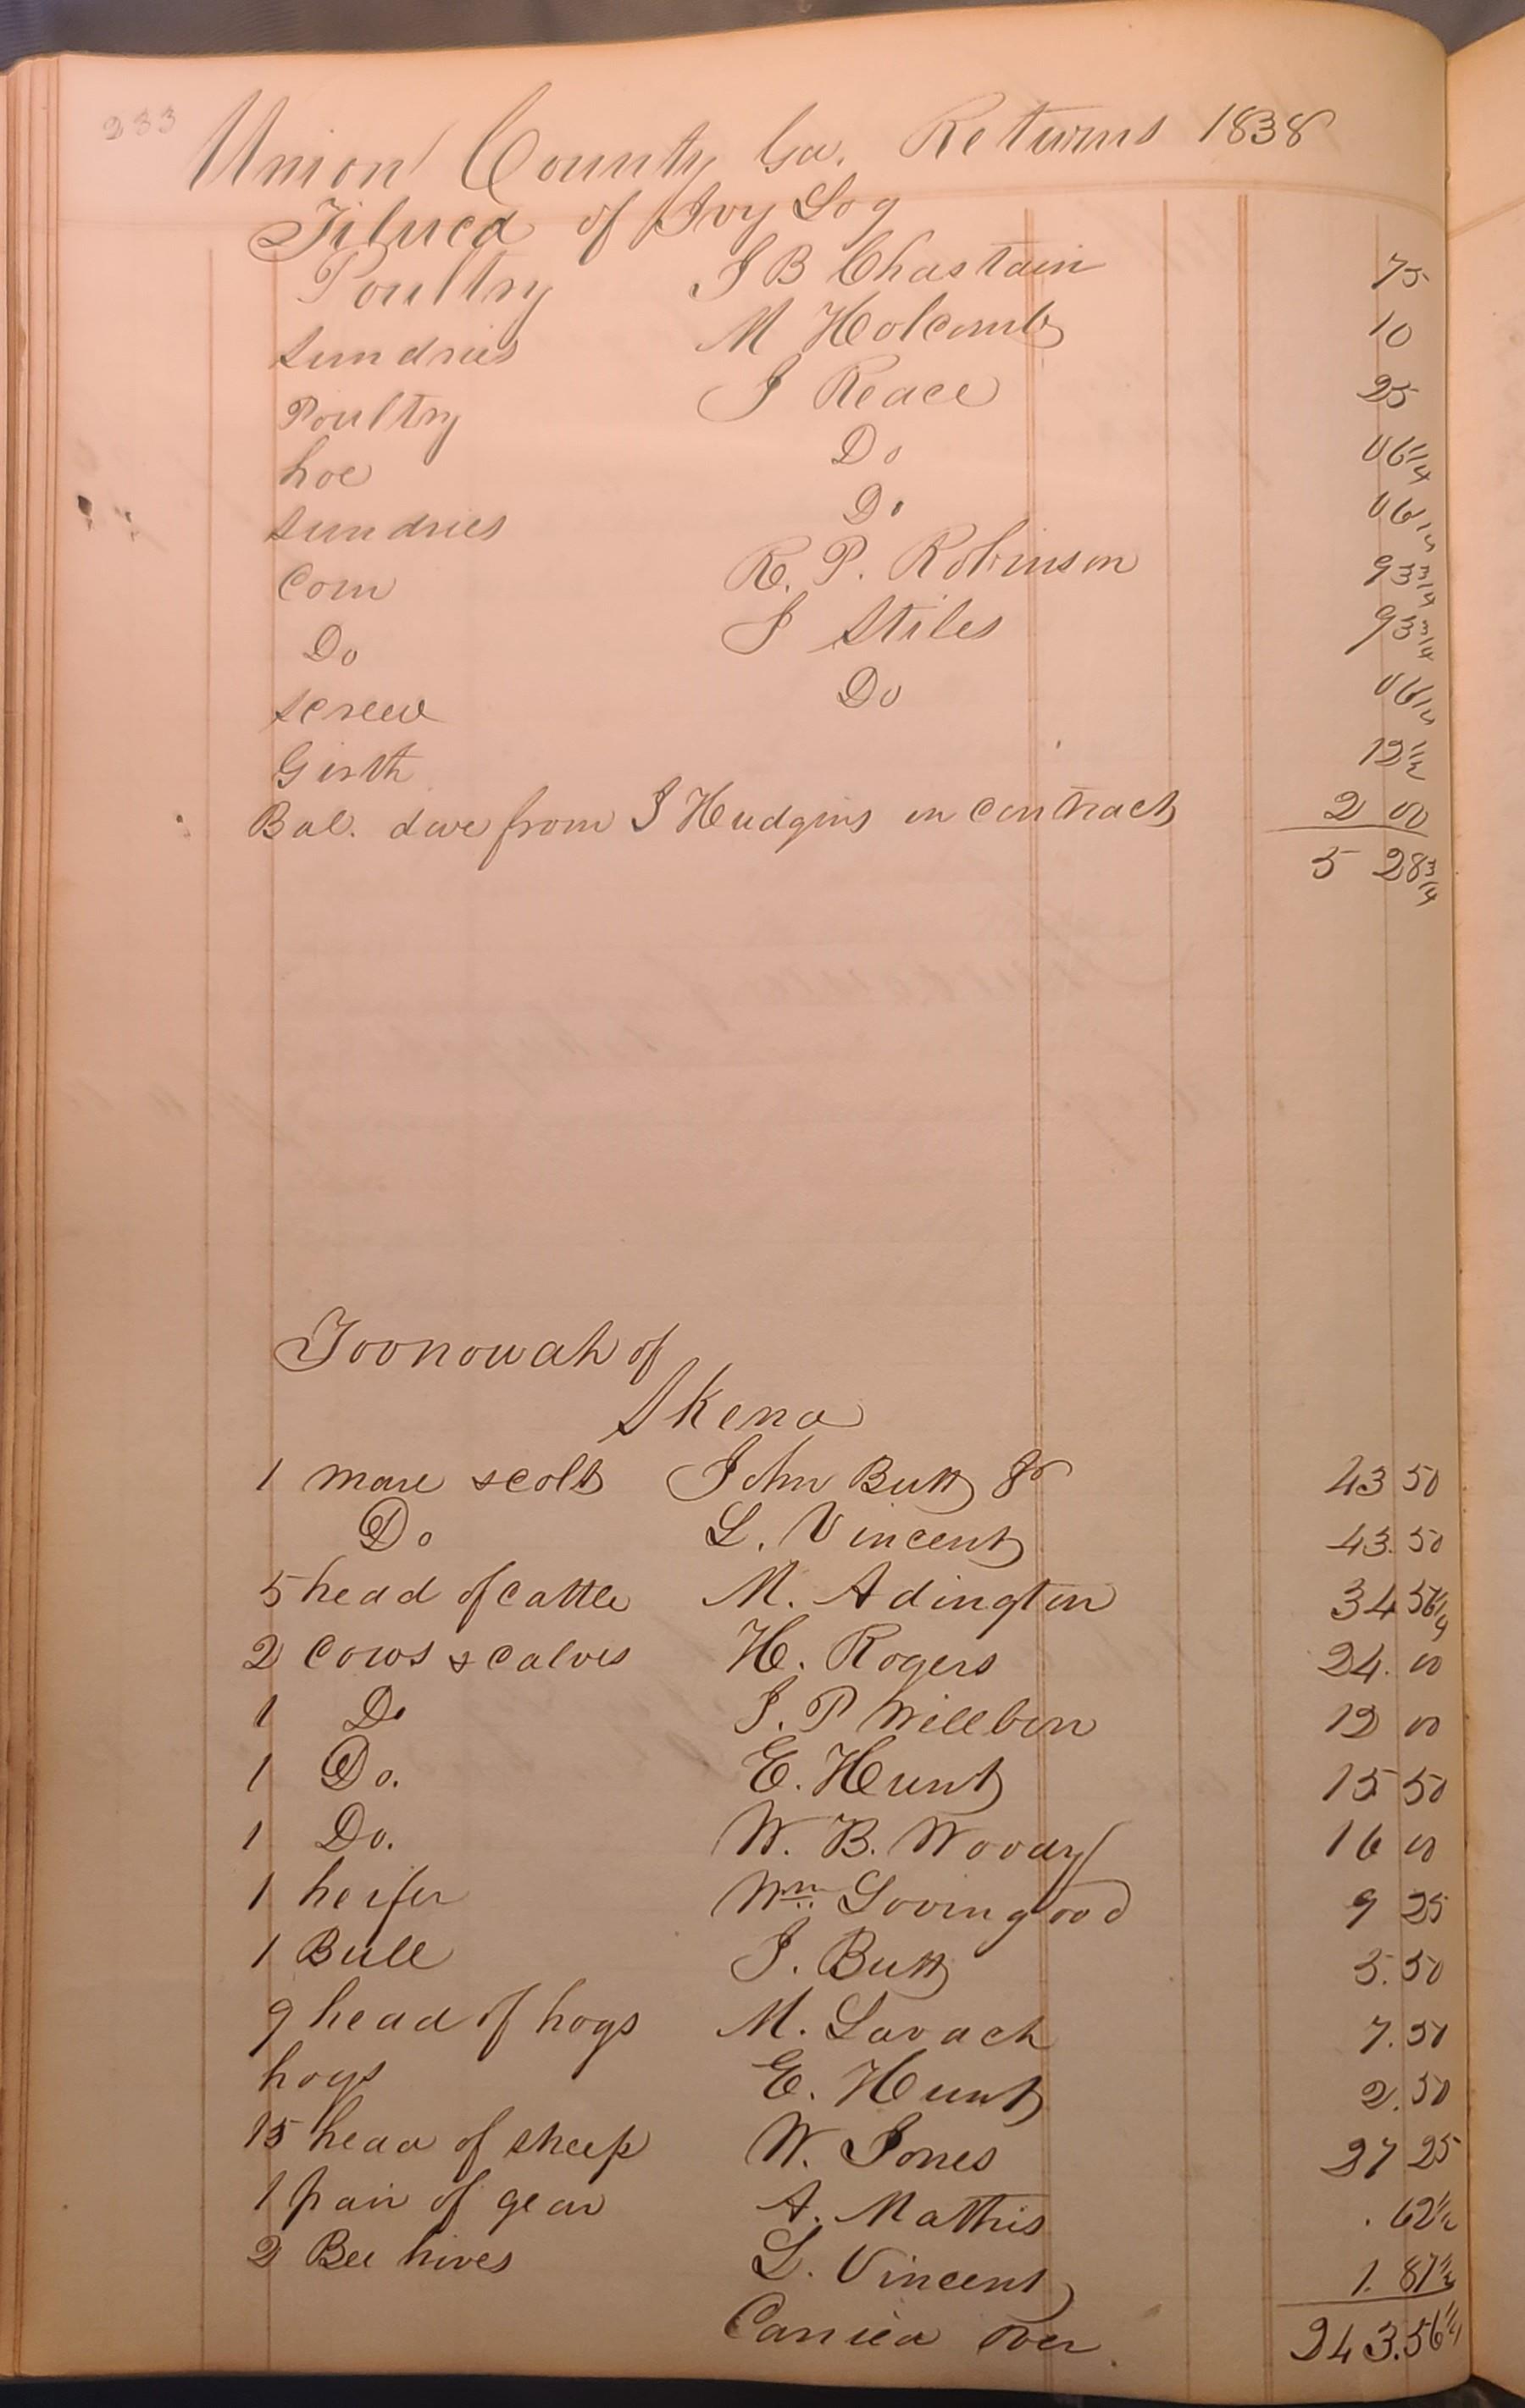 233
Union County Ga. Returns 1838
Tilued of Ivy Log
Poultry J B Chastain 75
Sundries M Holcomb 10
Poultry J Reace 25
hoe Do 06 1/4
Sundries Do 06 1/2
Corn R. P. Robinson 93 3/4
Do J Stiles 93 3/4
Screw Do 06 1/2
Girth 12 1/2
Bal. due from J Hudgins on contract 2 00
5 28 3/4
Toonowah of
Skena
1 mare & colt John Butt Jr 43 50
Do L. Vincent 43. 50
5 head of cattle M. Adington 34 56 1/4
2 Cows & calves H. Rogers 24. 00
1 Do J. P Willbon 12 00
1 Do. E. Hunt 15 50
1 Do. W. B. Woody 16 00
1 heifer Wm Lovingood 9 25
1 Bull J. Butt 5. 50
9 head of hogs M. Lavach 7. 50
hogs E. Hunt 2. 50
15 head of sheep W. Jones 27 25
1 pair of gear A. Mathis . 62 1/2
2 Bee hives L. Vincent 1. 87 1/2
Carried over 243. 56 1/4